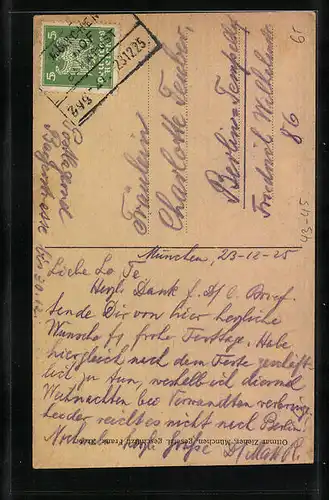 5
5
Deutsches Reich
MÜNCHEN
23.12.25.
Fräulein
Charlotte Teuber,
Berlin-Tempelhof
Friedrich Wilhelmstr.
86
43-45
Postlagernd
München, 23-12-25
Liebe Lo Te,
Herzl. Dank f. Dl. l. Brief.
Sende Dir von hier herzliche
Wünsche f. frohe Festtage. Habe
hier gleich nach dem Feste geschäft-
lich zu tun, weshalb ich diesmal
Weihnachten bei Verwandten verbringe.
Leider reicht es nicht nach Berlin.
Nochmals herzl. Grüße D/ Max R.
Ottmar Zieher, München, gesetzl. geschützt.